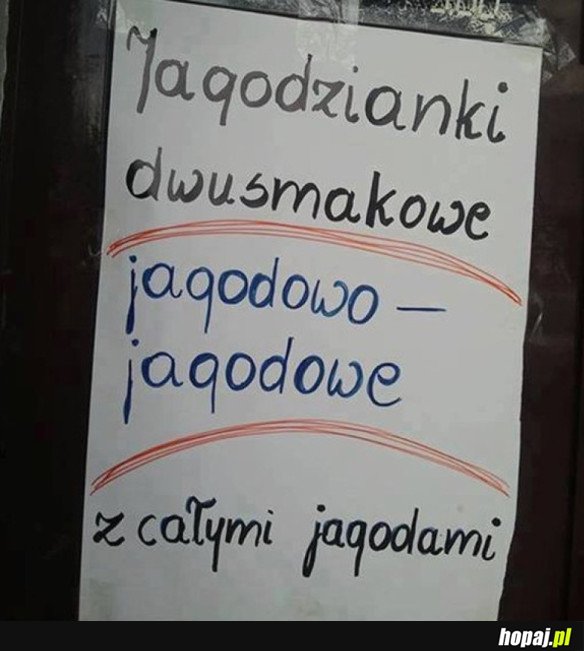 Jagodzianki
dwusmakowe
jagodowo –
jagodowe
z całymi jagodami
hopaj.pl